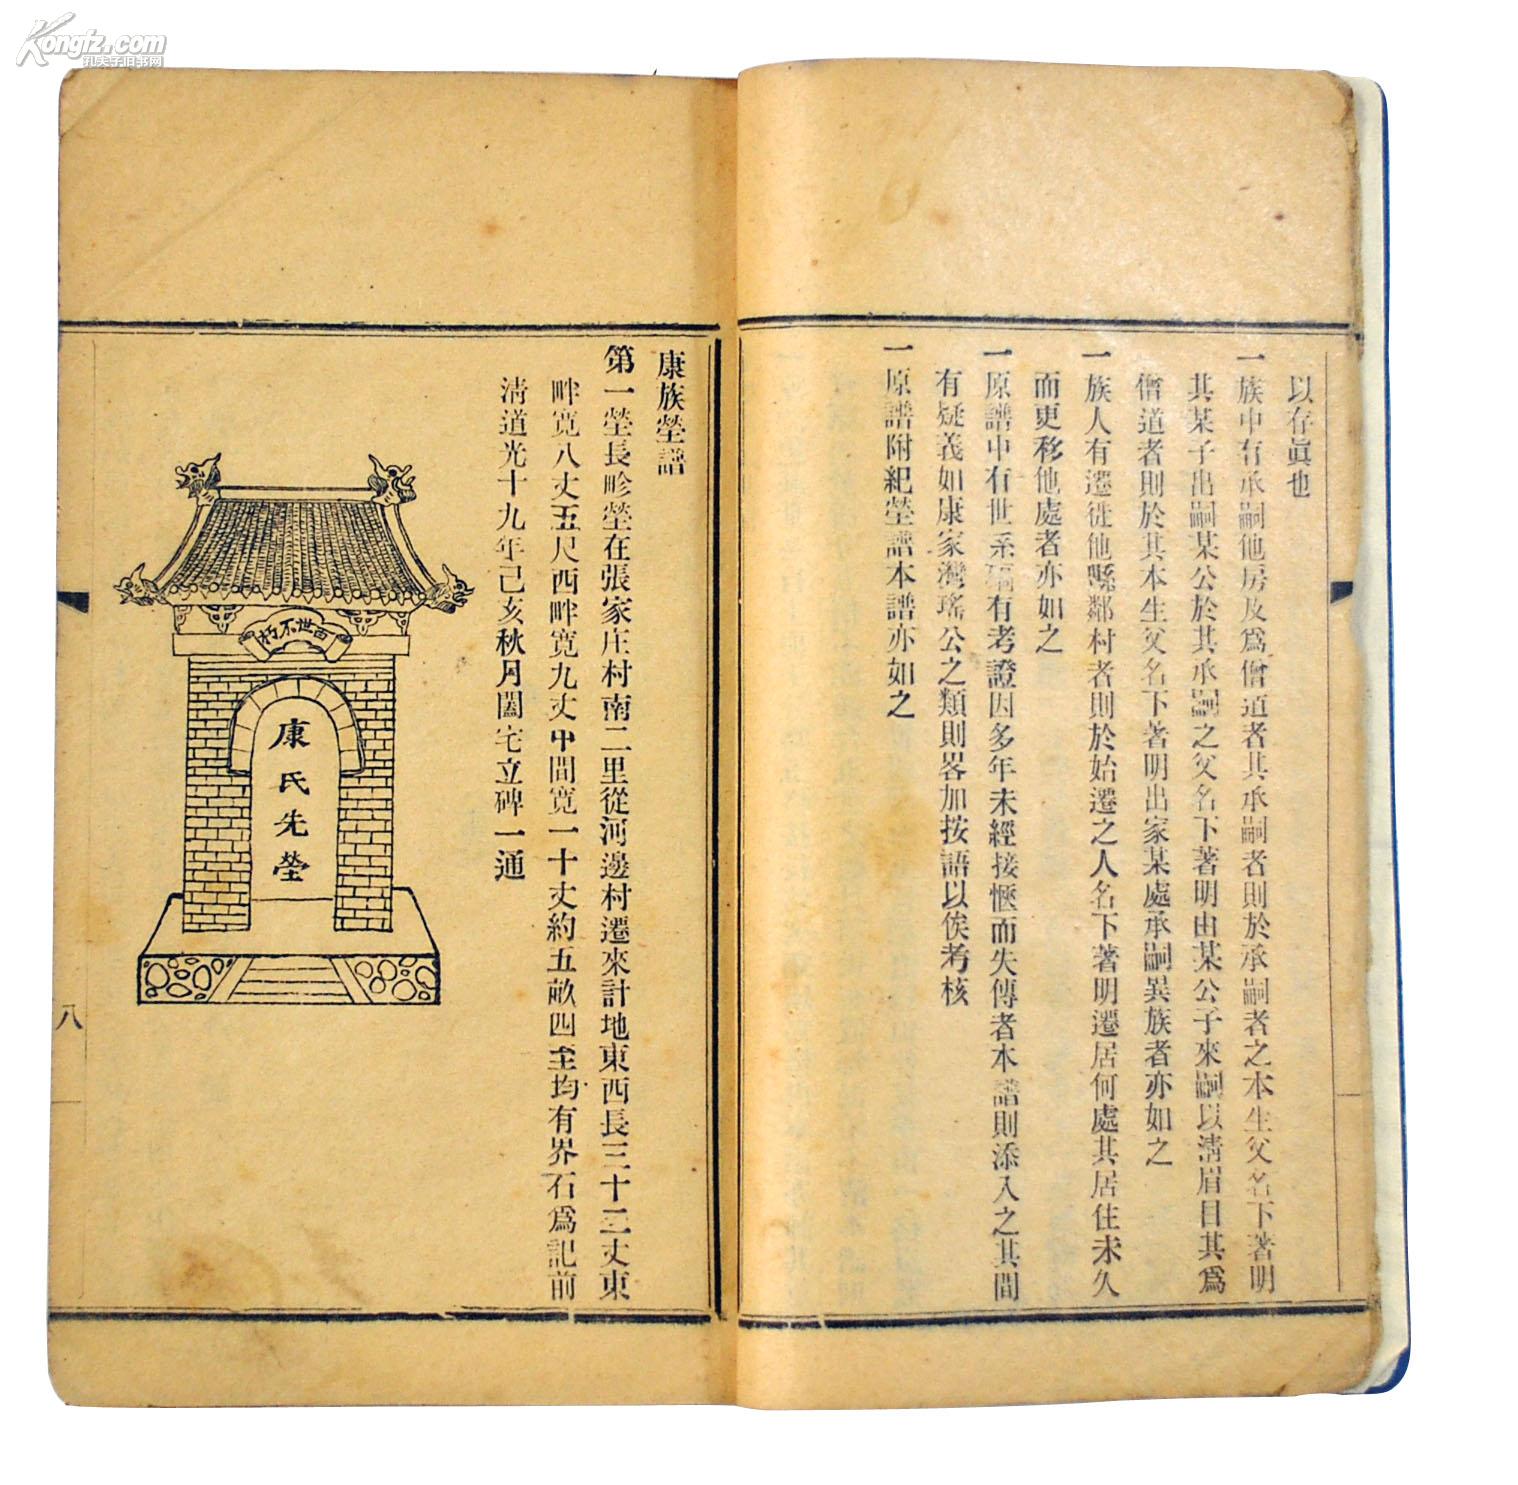 以存眞也
一族中有承嗣他房及爲僧道者其承嗣者則於承嗣者之本生父名下著明
其某子出嗣某公於其承嗣之父名下著明由某公子來嗣以淸眉目其爲
僧道者則於其本生父名下著明出家某處承嗣異族者亦如之
一族人有遷徙他縣鄰村者則於始遷之人名下著明遷居何處其居住未久
而更移他處者亦如之
一原譜中有世系確有考證因多年未經接愜而失傳者本譜則添入之其間
有疑義如康家灣瑤公之類則畧加按語以俟考核
一原譜附紀塋譜本譜亦如之
康族塋譜
第一塋長畛塋在張家庄村南二里從河邊村遷來計地東西長三十三丈東
畔寬八丈五尺西畔寬九丈中間寬一十丈約五畝四至均有界石爲記前
淸道光十九年己亥秋月闔宅立碑一通
百世不朽
康氏先塋
八
Kongfz.com
孔夫子旧书网